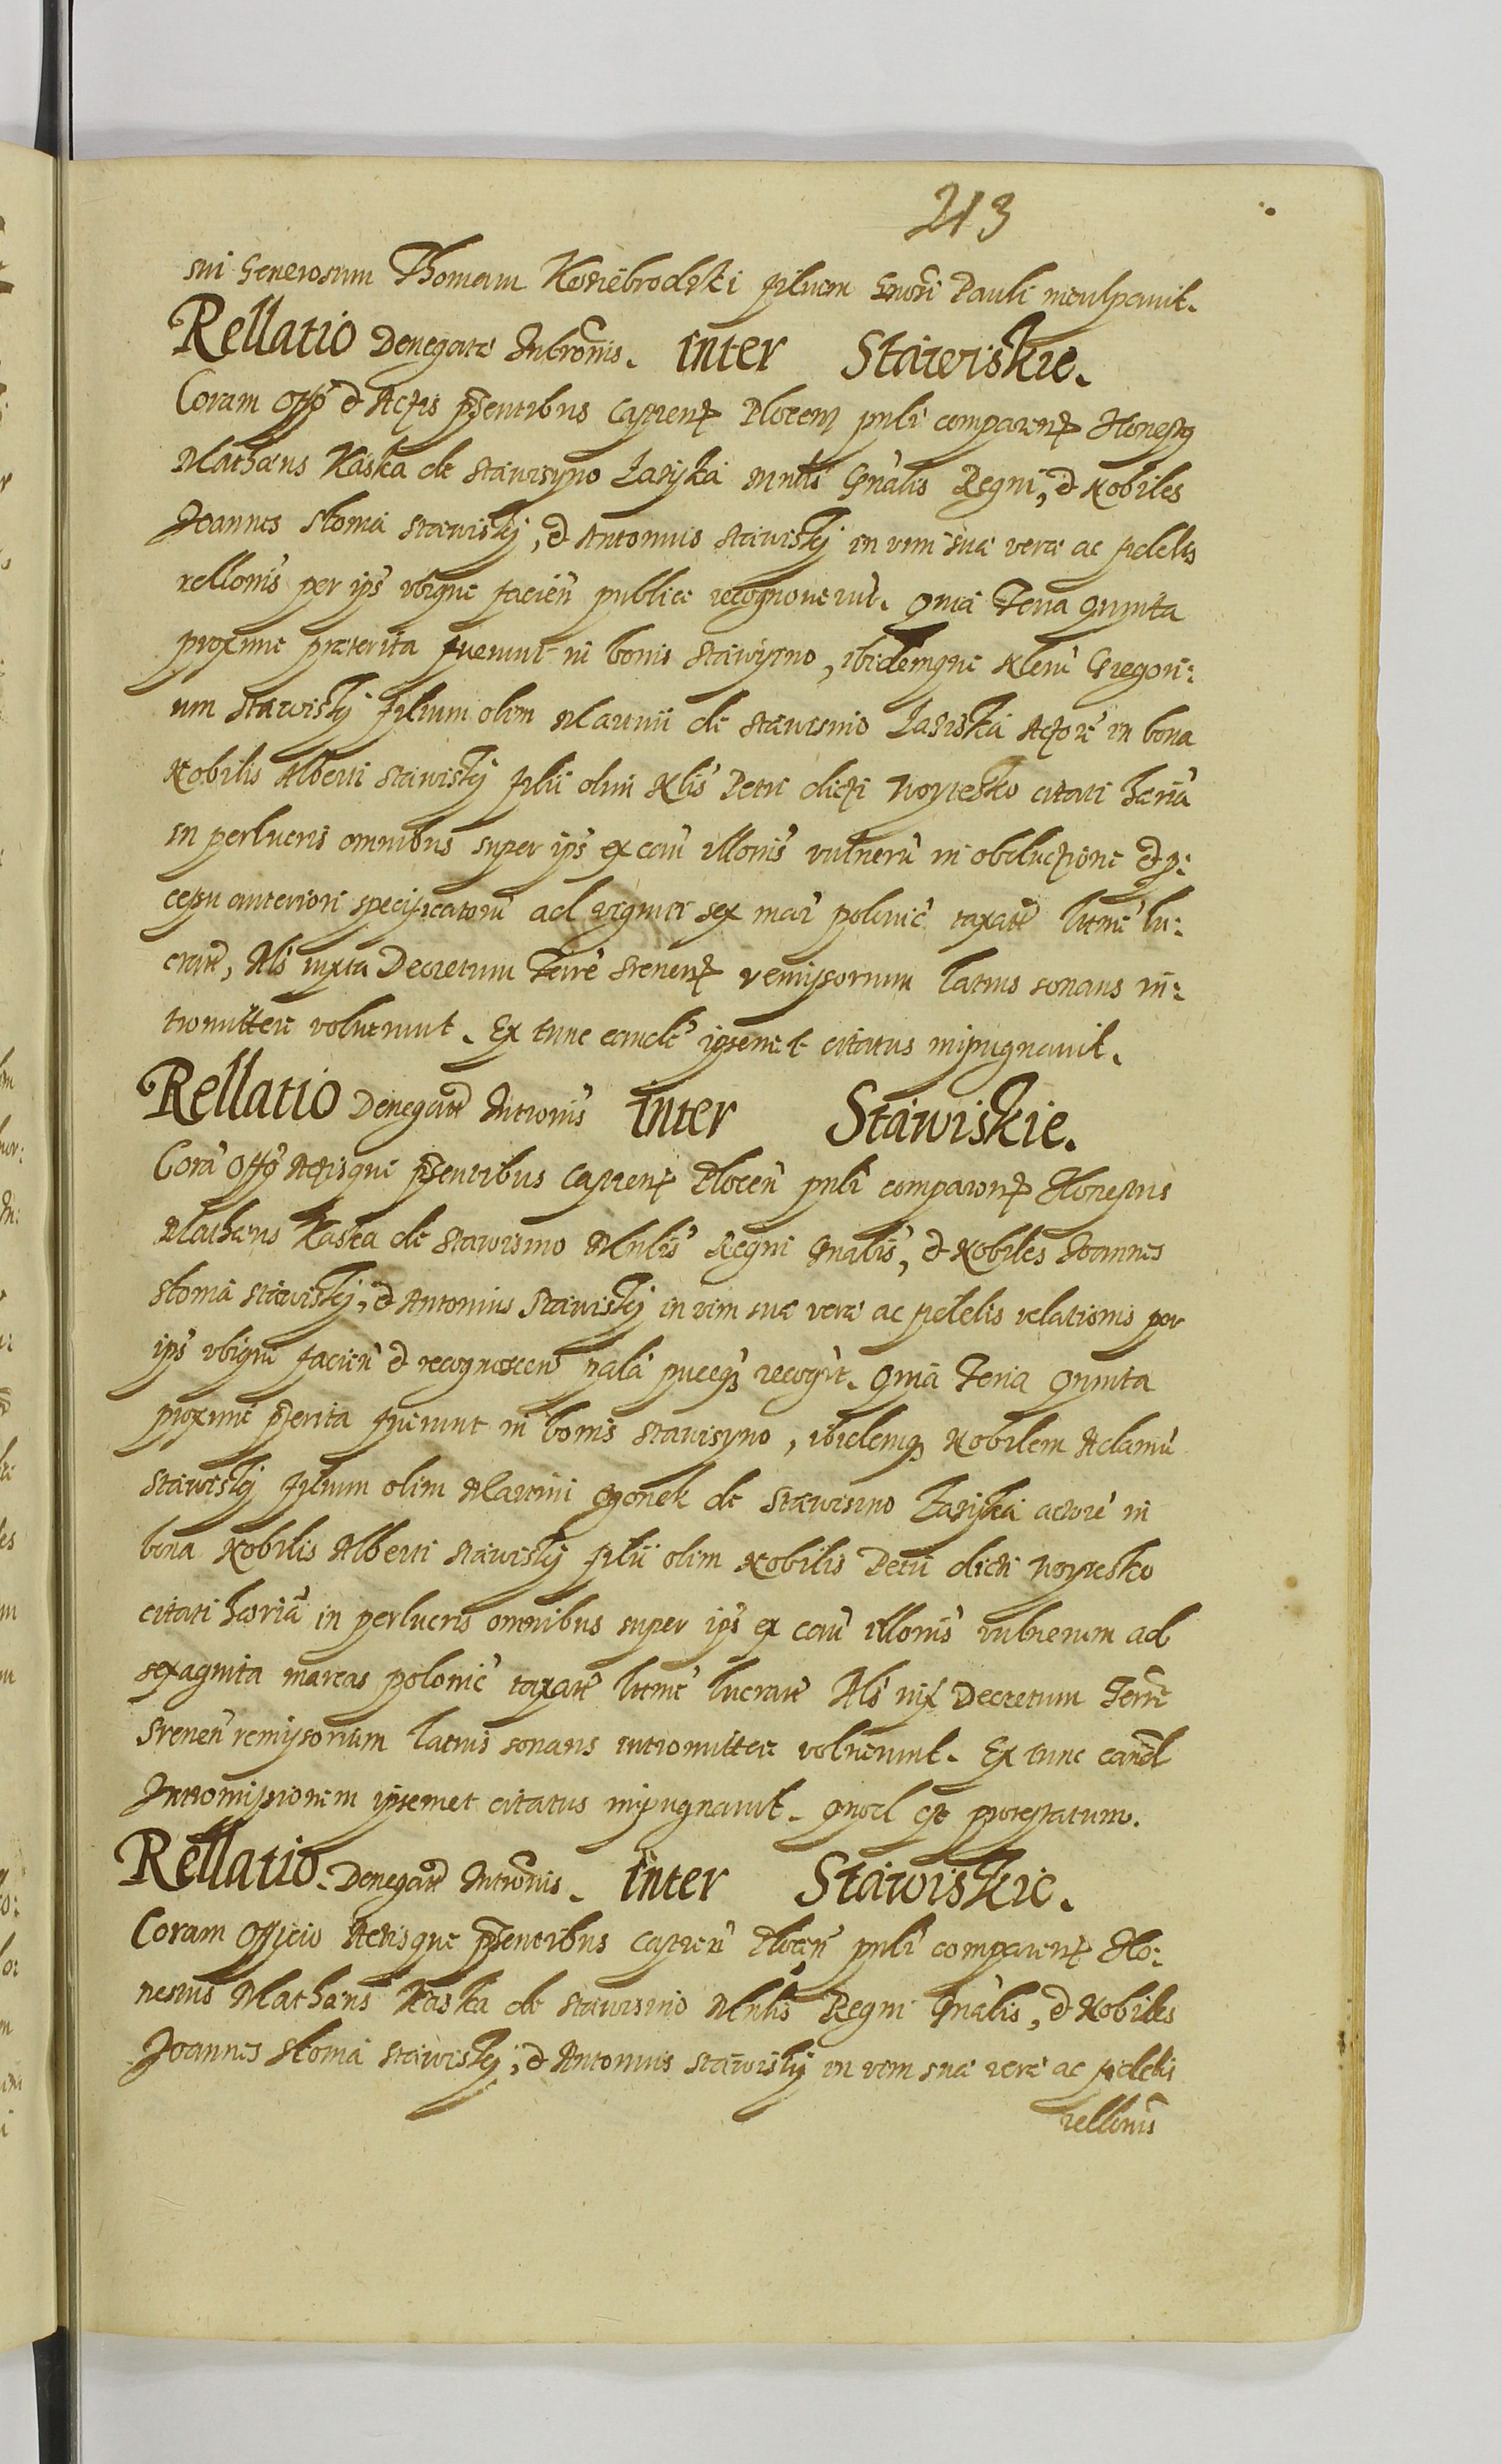 213
sui Generosum Thomam Koziebrodzki filium Gnosi Pauli inculpavit.
Rellatio Denegatae Intromis. inter Stawiskie.
Coram Offo et Actis pntibus Castren Plocen psnlr comparent Honestus
Mathaeus Kaska de Stawisyno Laziska Mnlis Gnalis Regni, et Nobiles
Joannes Stoma Stawiskj, et Antonius Stawiskj in vim suae verae ac fidelis
rellonis per ips ubique facien publice recognoverut. Quia Feria Quinta
proxime praeterita fuerunt in bonis Stawisyno, ibidemque Nlem Gregori:
um Stawiskj filium olim Martini de Stawisino Laziska Actore in bona
Nobilis Alberti Stawiskj filii olim Nlis Petri dicti Woytesko citati haeria
in perlucris omnibus super ips ex cau illonis vulneru in obductione et p:
cessu anteriori specificatoru ad viginti sex mar polonic taxate litme lu:
crate, Als iuxta Decretum Terre Srenen remissorium latius sonans in:
tromittere voluerunt. Ex tunc eande ipsemet citatus impugnavit.
Rellatio Denegate Intronis inter Stawiskie.
Cora Offo Actisque pntibus Castren Plocen psnlr comparent Honestus
Mathaeus Kaska de Stawisino Mnlis Regni Gnalis, et Nobiles Joannes
Stoma Stawiskj, et Antonius Stawiskj in vim suae verae ac fidelis relationis per
ips ubique facien et recognoscen pala puceq recogrt. Quia Feria Quinta
proxime pterita fuerunt in bonis Stawisyno, ibidemq Nobilem Adamu
Stawiskj filium olim Martini de Stawisino Laziska actore in
bona Nobilis Alberti Stawiskj filii olim Nobilis Petri dicti Woytesko
citati haeria in perlucris omnibus super ips ex cau illonis vulnerum ad
sexaginta marcas polonic taxate litme lucrate Als iux Decretum Terre
Srenen remissorium latius sonans intromittere voluerunt. Ex tunc eand
Intromissionem ipsemet citatus impugnavit. Quod est protestatum.
Rellatio. Denegate Intronis. inter Stawiskie.
Coram Officio Actisque pntibus Castren Plocen psnlr comparent Ho:
nestus Mathaeus Kaska de Stawisino Mnlis Regni Gnalis, et Nobiles
Joannes Stoma Stawiskj, et Antonius Stawiskj in vim suae verae ac fidelis
rellonis